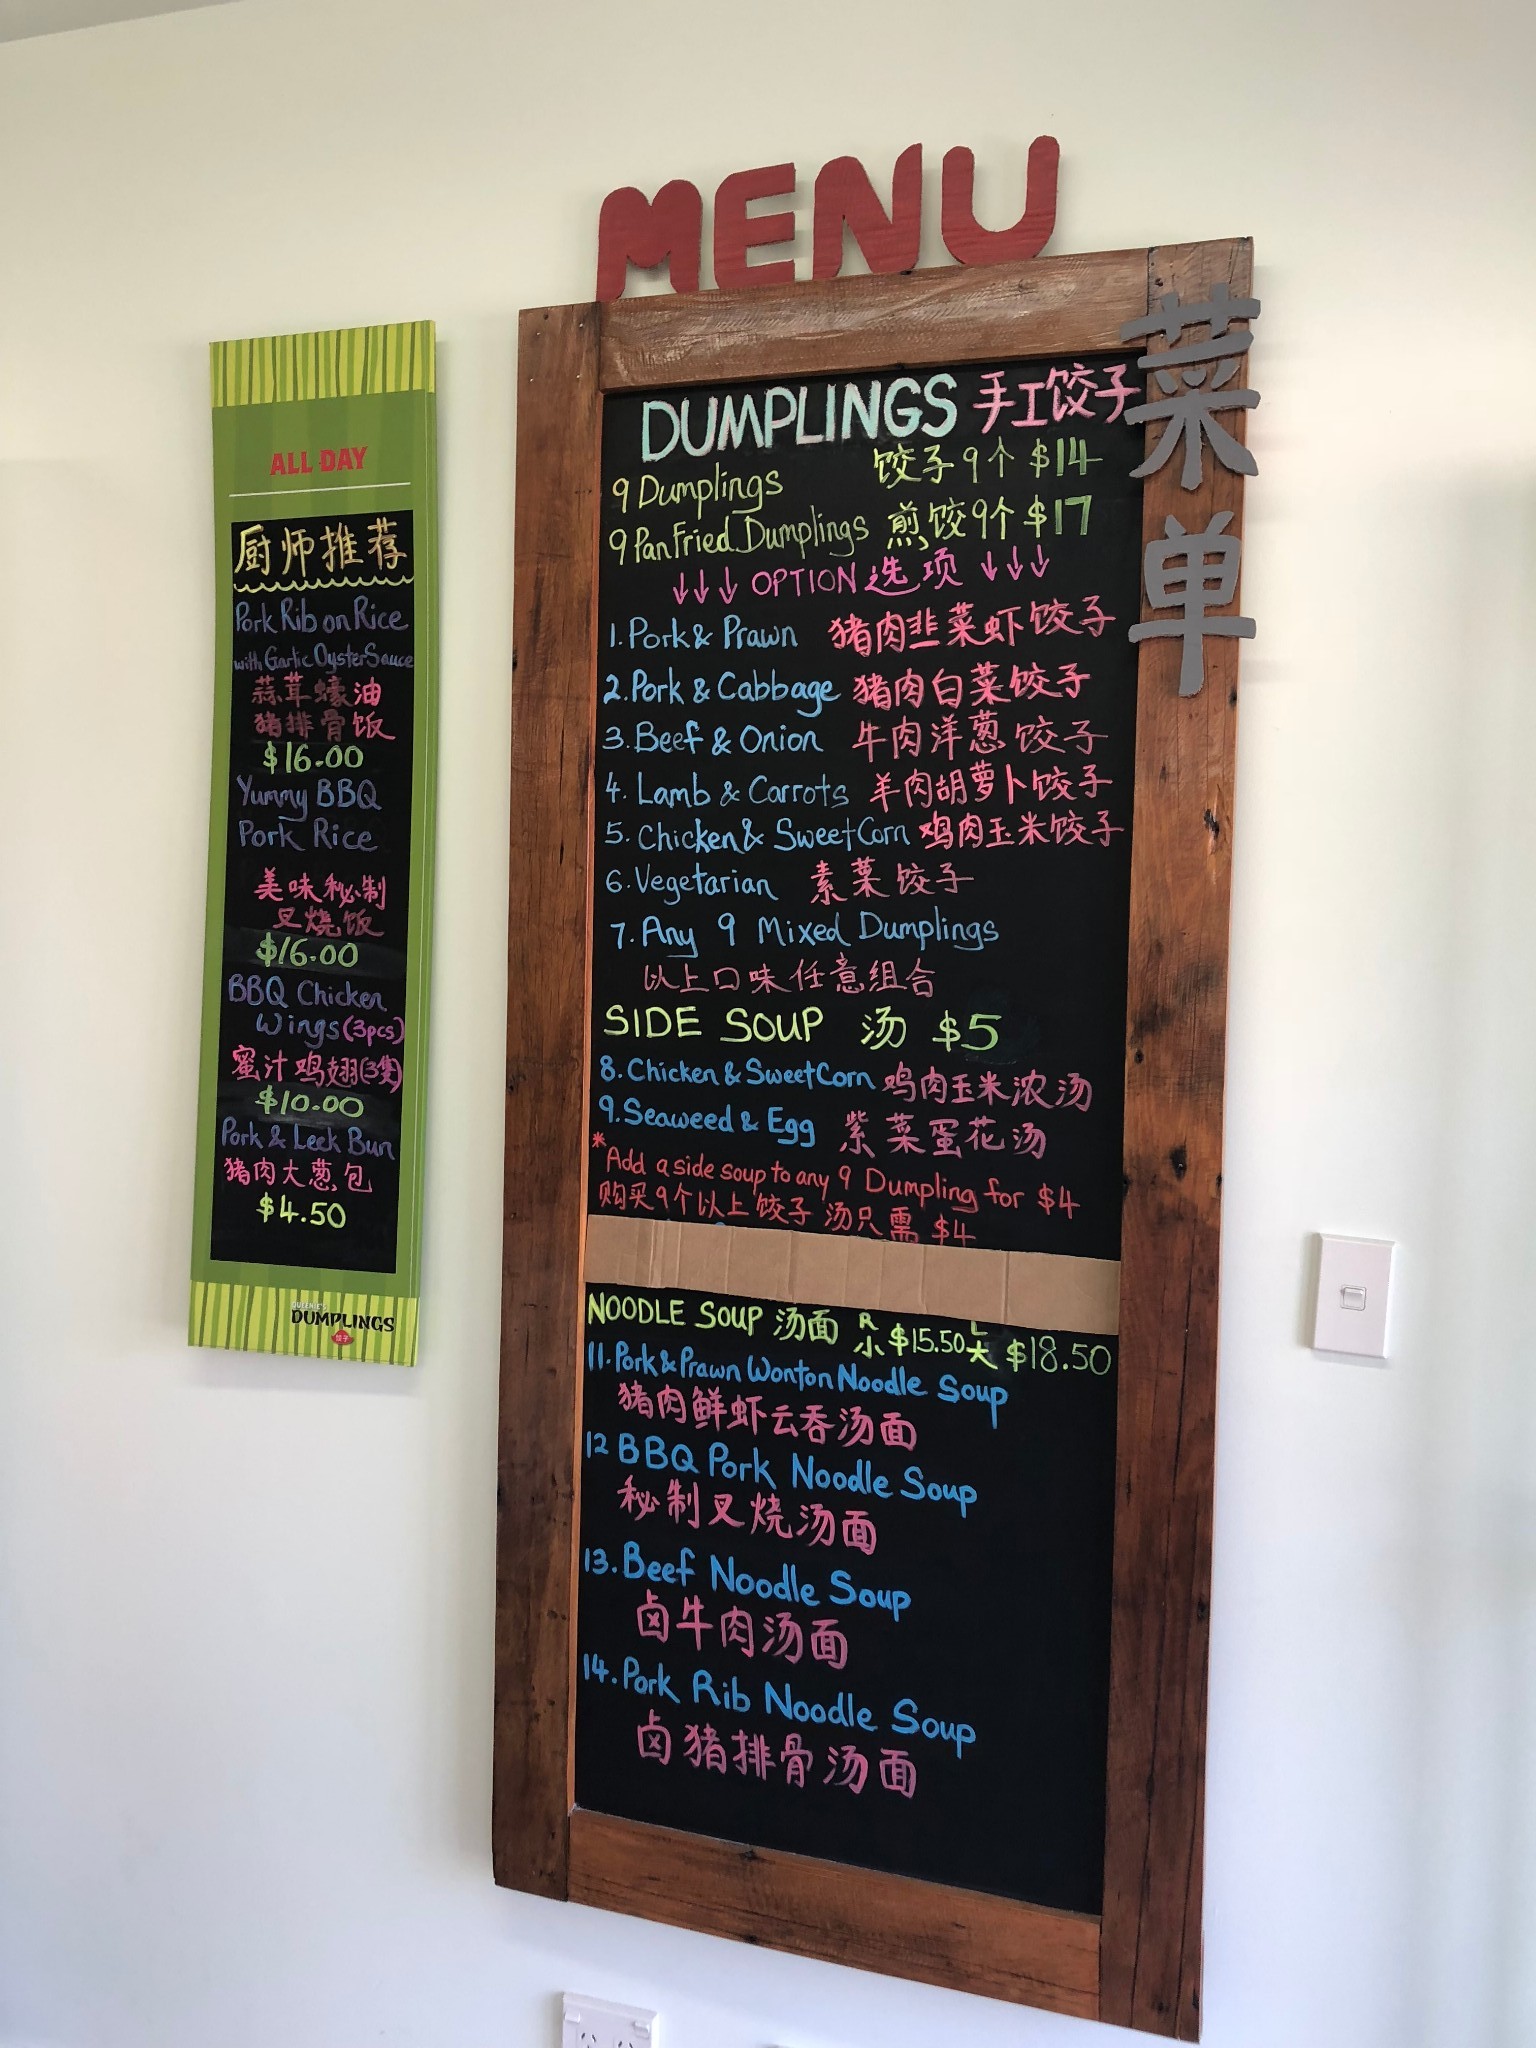 MENU
菜单
ALL DAY
厨师推荐
Pork Rib on Rice
with Garlic Oyster Sauce
蒜茸蠔油
猪排骨饭
$16.00
Yummy BBQ
Pork Rice
美味秘制
叉烧饭
$16.00
BBQ Chicken
Wings (3pcs)
蜜汁鸡翅(3隻)
$10.00
Pork & Leek Bun
猪肉大葱包
$4.50
QUEENIE'S
DUMPLINGS
饺子
DUMPLINGS 手工饺子
9 Dumplings 饺子9个 $14
9 Pan Fried Dumplings 煎饺9个 $17
↓↓↓ OPTION 选项 ↓↓↓
1. Pork & Prawn 猪肉韭菜虾饺子
2. Pork & Cabbage 猪肉白菜饺子
3. Beef & Onion 牛肉洋葱饺子
4. Lamb & Carrots 羊肉胡萝卜饺子
5. Chicken & Sweet Corn 鸡肉玉米饺子
6. Vegetarian 素菜饺子
7. Any 9 Mixed Dumplings
以上口味任意组合
SIDE SOUP 汤 $5
8. Chicken & Sweet Corn 鸡肉玉米浓汤
9. Seaweed & Egg 紫菜蛋花汤
*Add a side soup to any 9 Dumpling for $4
购买9个以上饺子汤只需 $4
NOODLE SOUP 汤面 R小 $15.50 L大 $18.50
11. Pork & Prawn Wonton Noodle Soup
猪肉鲜虾云吞汤面
12 BBQ Pork Noodle Soup
秘制叉烧汤面
13. Beef Noodle Soup
卤牛肉汤面
14. Pork Rib Noodle Soup
卤猪排骨汤面